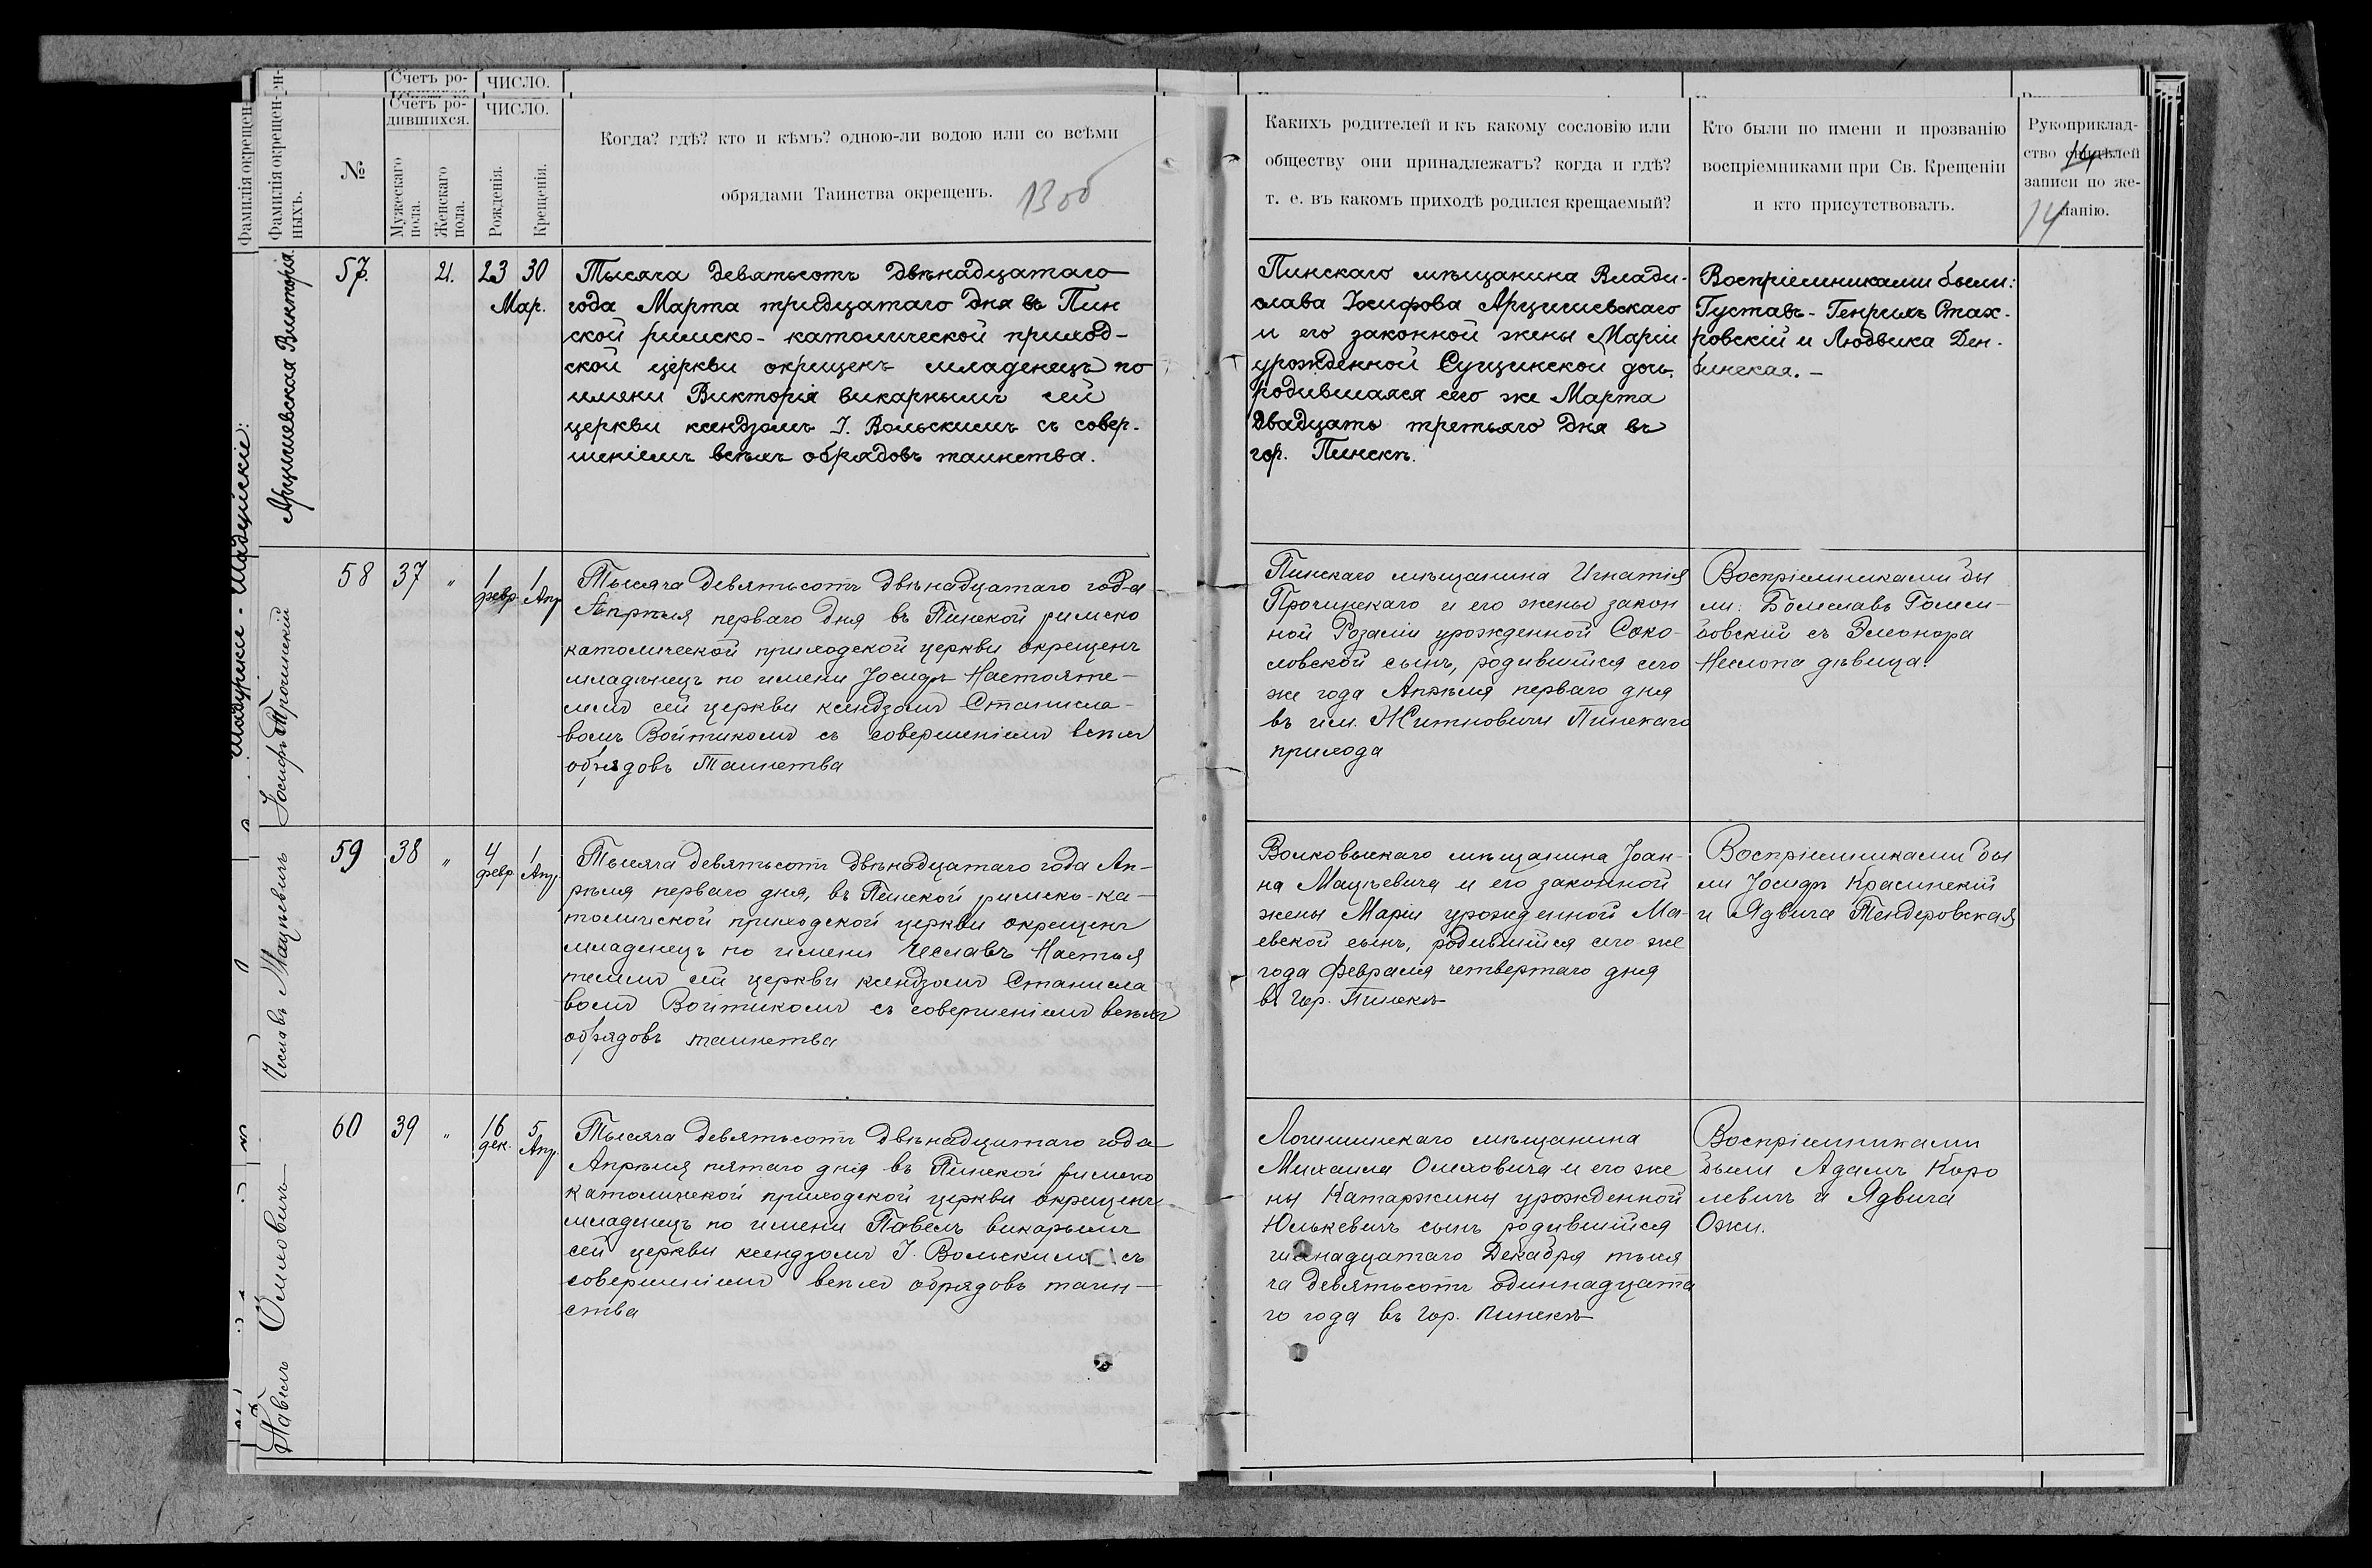 Счетъ ро-
ЧИСЛО.
Фамилія окрещен-
Фамилія окрещен-
ныхъ.
№
Счетъ ро-
дившихся.
Мужескаго
пола.
Женскаго
пола.
ЧИСЛО.
Рожденія.
Крещенія.
Когда? гдѣ? кто и кѣмъ? одною-ли водою или со всѣми
обрядами Таинства окрещенъ.
Какихъ родителей и къ какому сословію или
обществу они принадлежатъ? когда и гдѣ?
т. е. въ какомъ приходѣ родился крещаемый?
Кто были по имени и прозванію
воспріемниками при Св. Крещеніи
и кто присутствовалъ.
Рукоприклад-
ство свидѣтелей
записи по же-
ланію.
14
Арцишевская Викторія
57.
21.
23 30
Мар.
Тысяча девятьсотъ двѣнадцатаго
года Марта тридцатаго дня въ Пин
ской римско-католической приход-
ской церкви окрещенъ младенецъ по
имени Викторія викарнымъ сей
церкви ксендзомъ І. Вольскимъ съ совер-
шеніемъ всѣхъ обрядовъ таинства.
Пинскаго мѣщанина Влади-
слава Іосифова Арцишевскаго
и его законной жены Маріи
урожденной Сущинской дочь,
родившаяся сего же Марта
двадцать третьяго дня въ
гор. Пинскѣ.
Воспріемниками были:
Густавъ-Генрихъ Стах-
ровскій и Людвика Ден-
бинская. –
Іосифъ Прочинскій
58
37
"
1
февр.
1
Апр
Тысяча девятьсотъ двѣнадцатаго года
Апрѣля перваго дня въ Пинской римско
католической приходской церкви окрещенъ
младенецъ по имени Іосифъ Настояте-
лемъ сей церкви ксендзомъ Станисла-
вомъ Войтикомъ съ совершеніемъ всѣхъ
обрядовъ Таинства
Пинскаго мѣщанина Игнатія
Прочинскаго и его жены закон
ной Розаліи урожденной Соко-
ловской сынъ, родившійся сего
же года Апрѣля перваго дня
въ им. Житновичи Пинскаго
прихода
Воспріемниками бы
ли: Болеславъ
съ Элеонора
дѣвица.
Чеславъ Мацкевичъ
59
38
"
4
февр.
1
Апр.
Тысяча девятьсотъ двѣнадцатаго года Ап-
рѣля перваго дня, въ Пинской римско-ка-
толической приходской церкви окрещенъ
младенецъ по имени Чеславъ Настоя
телемъ сей церкви ксендзомъ Станисла
вомъ Войтикомъ съ совершеніемъ всѣхъ
обрядовъ таинства
Волковыскаго мѣщанина Іоан-
на Мацкевича и его законной
жены Маріи урожденной Ма-
евской сынъ, родившійся сего же
года февраля четвертаго дня
въ гор. Пинскѣ
Воспріемниками бы
ли Іосифъ Красинскій
и Ядвига Тендеровская
Павелъ Олиховичъ
60
39
"
16
дек.
5
Апр.
Тысяча девятьсотъ двѣнадцатаго года
Апрѣля пятаго дня въ Пинской римско
католической приходской церкви окрещенъ
младенецъ по имени Павелъ викарымъ
сей церкви ксендзомъ І. Вольскимъ съ
совершеніемъ всѣхъ обрядовъ таин-
ства
Логишинскаго мѣщанина
Михаила Олиховича и его же
ны Катаржины урожденной
Юлькевичъ сынъ родившійся
шестнадцатаго Декабря тыся
ча девятьсотъ одиннадцата
го года въ гор. Пинскѣ
Воспріемниками
были Адамъ Коро
левичъ и Ядвига